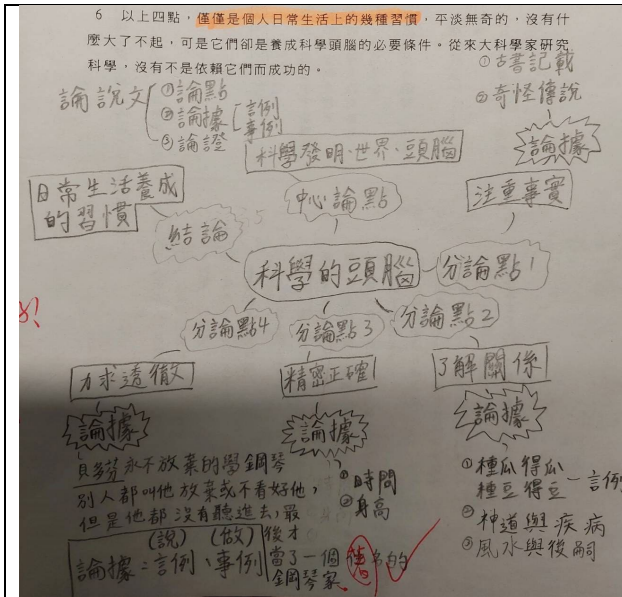 6 以上四點，僅僅是個人日常生活上的幾種習慣，平淡無奇的，沒有什
麼大了不起，可是它們卻是養成科學頭腦的必要條件。從來大科學家研究
科學，沒有不是依賴它們而成功的。
①古書記載
②奇怪傳說
論據
注重事實
分論點1
論說文
①論點
②論據
③論證
言例
事例
科學發明、世界、頭腦
中心論點
日常生活養成
的習慣
結論
科學的頭腦
分論點4
分論點3
分論點2
力求透徹
精密正確
了解關係
論據
論據
論據
貝多芬永不放棄的學鋼琴
別人都叫他放棄或不看好他，
但是他都沒有聽進去，最
後才
當了一個
鋼琴家。
(說) (做)
論據：言例、事例
①時間
②身高
①種瓜得瓜
種豆得豆－言例
②神道與疾病
③風水與後嗣